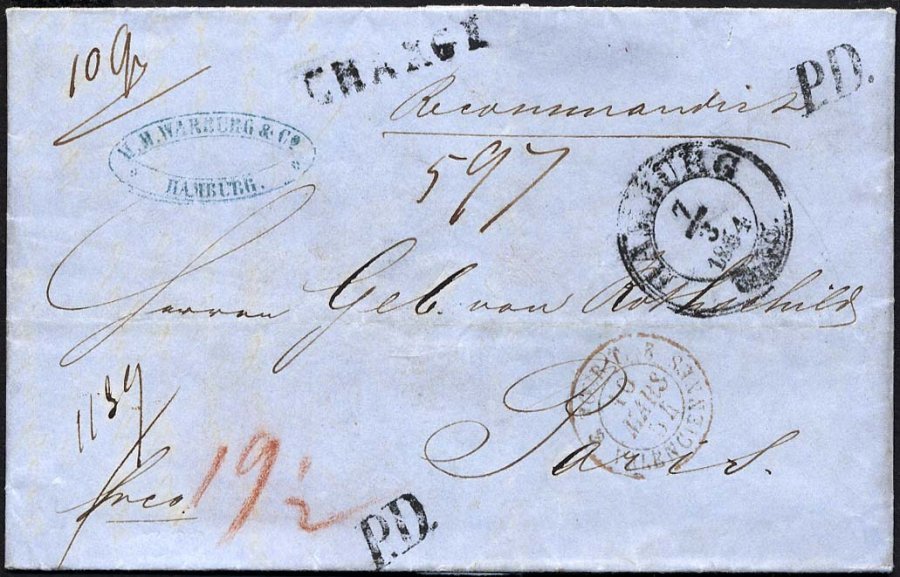 10 gr
CHARGÉ
P.D.
Recommandirt
M.M. WARBURG & Co.
HAMBURG.
597
HAMBURG
7/3
1854
Herren Geb. von Rothschild
PRUSSE VALENCIENNES
10
MARS
54
1139
Paris.
frco.
19 1/2
P.D.